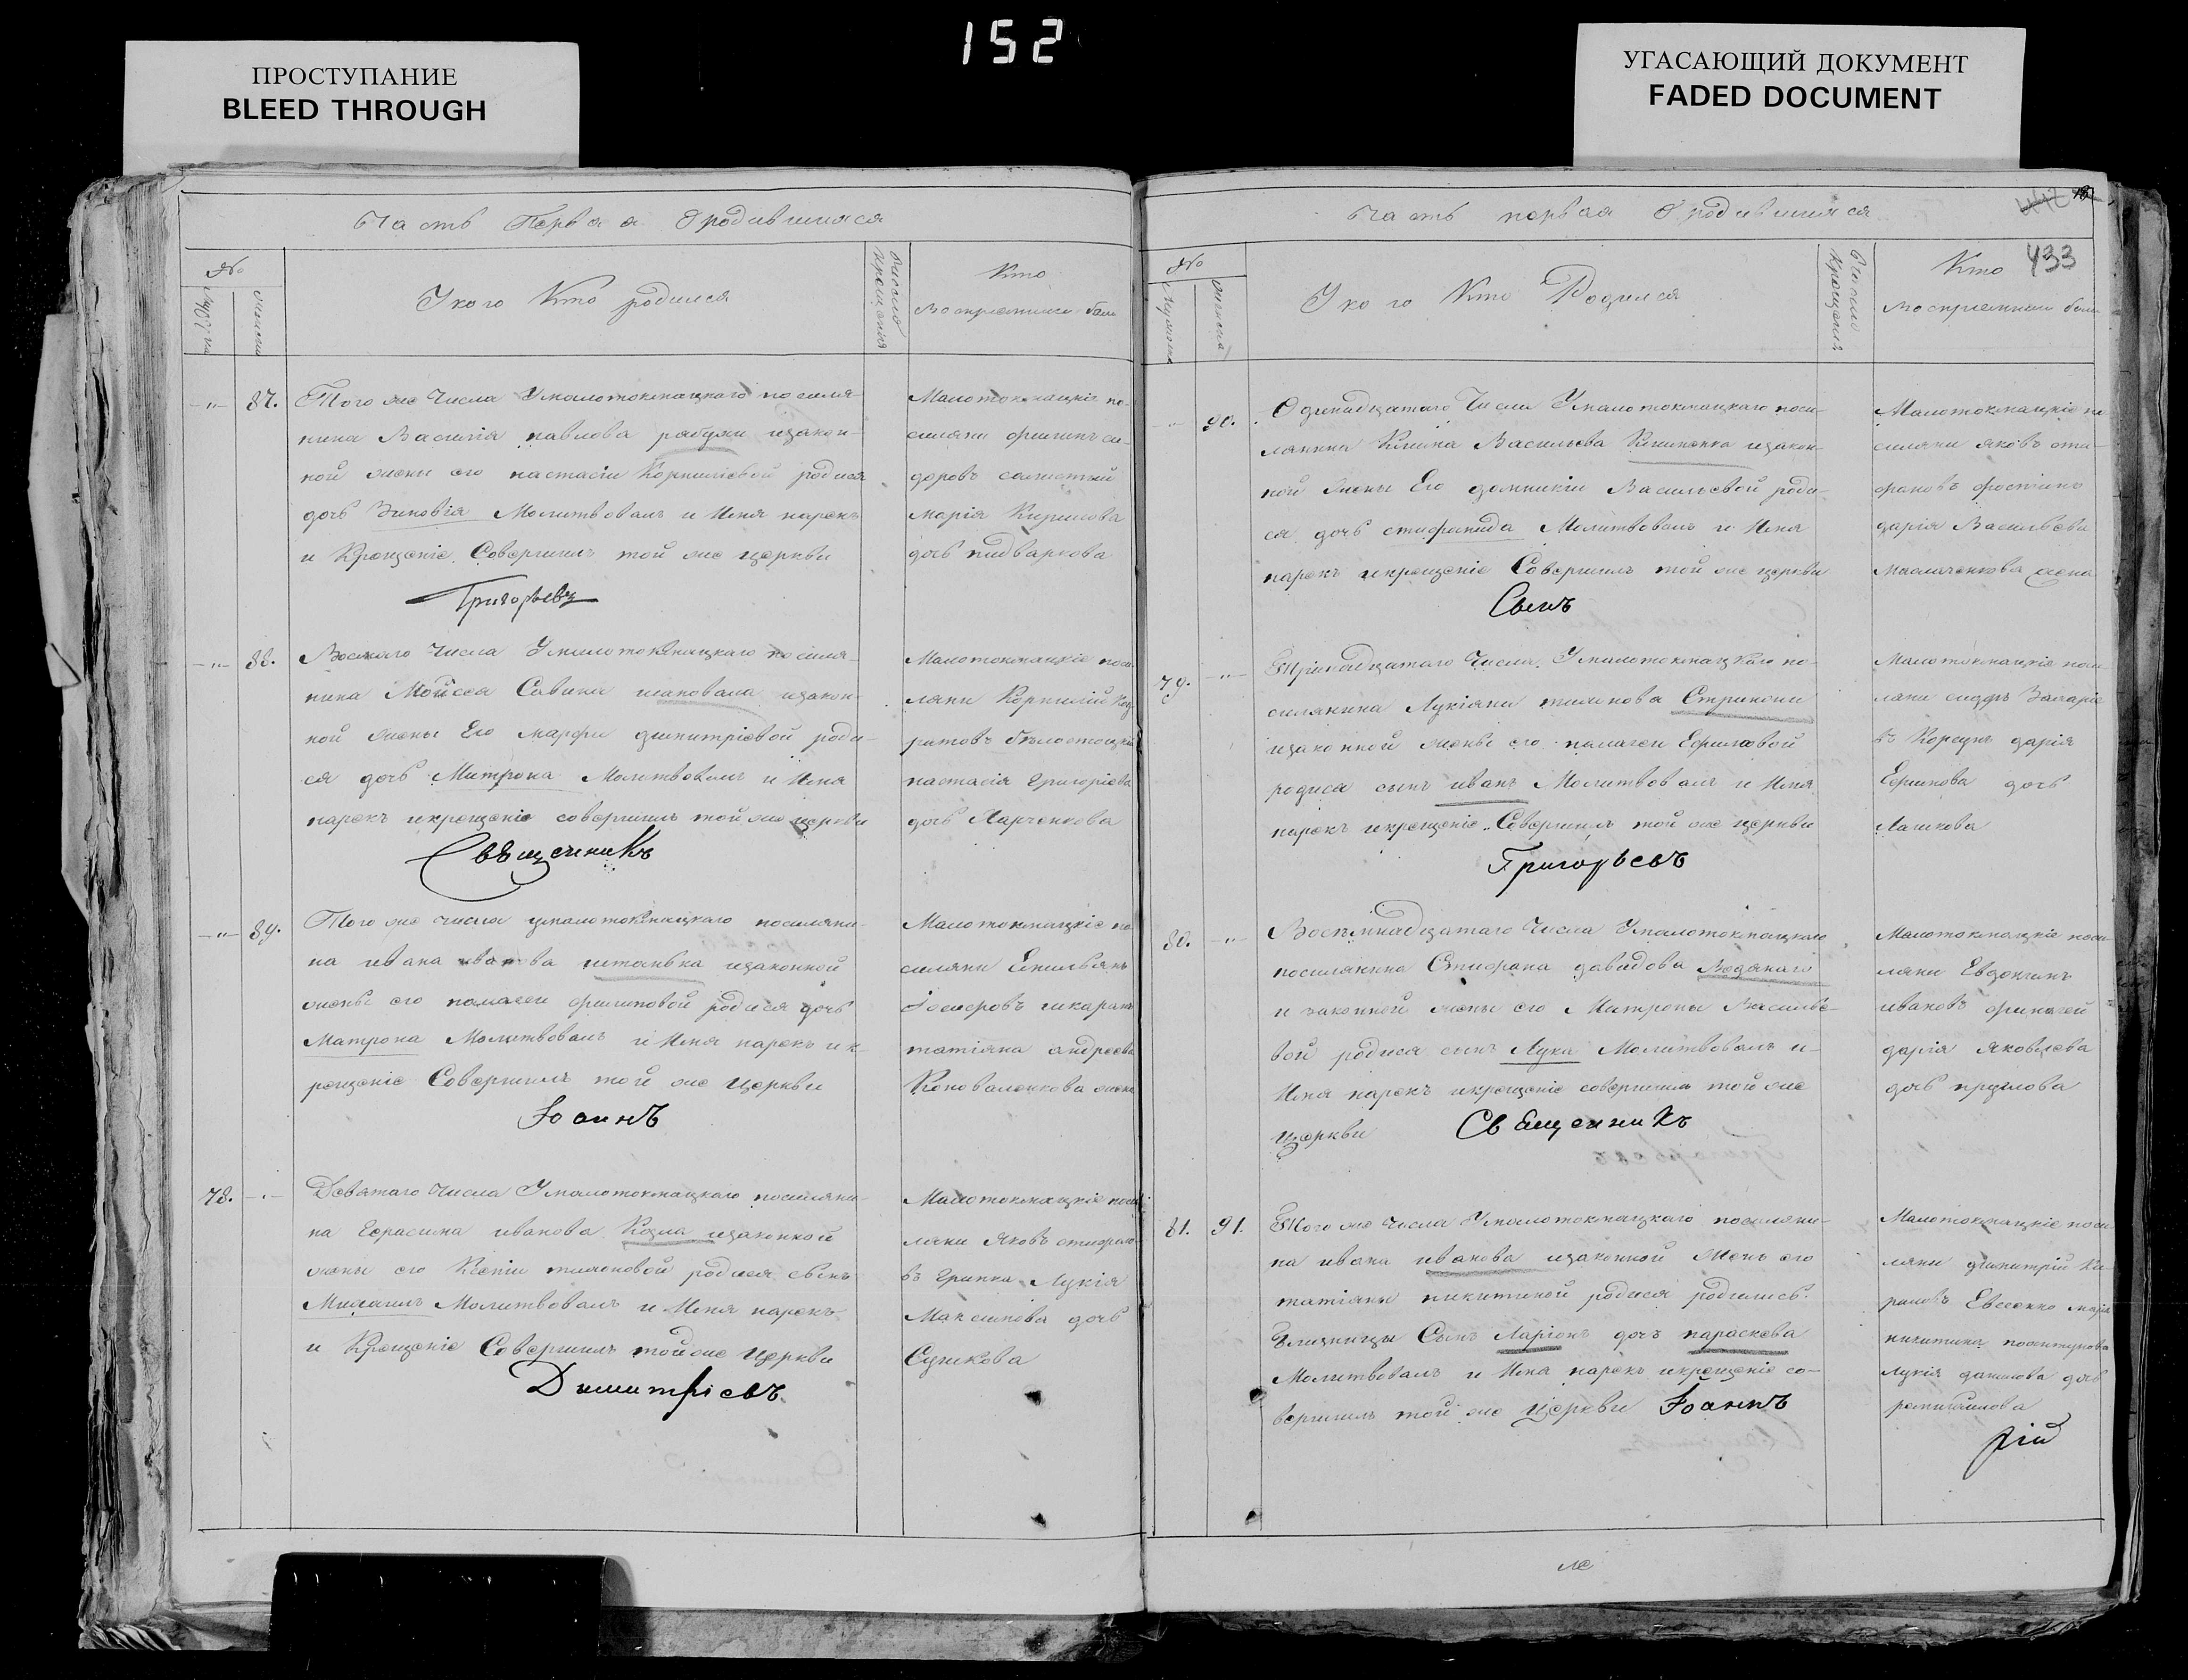 152
ПРОСТУПАНИЕ
BLEED THROUGH
УГАСАЮЩИЙ ДОКУМЕНТ
FADED DOCUMENT
Часть Первая О родившихся
№
Кто
У кого Кто родился
Воспреемники были
87. Того же Числа У малотокмацкаго поселя-
нина Василія павлова рябухи изакон-
ной жены его настасіи Корнилієвой родися
дочь Зиновія Молитвовалъ и Имя нарекъ
и Крещеніе Совершилъ той же церкви
Григорьевъ
Малотокмацкіе по-
селяни филипъ си-
доровъ
марія Кирилова
дочь
88. Восмаго Числа У малотокмацкаго поселя-
нина Мойсея Савина шаповала изакон-
ной жены Его марфи димитрієвой роди-
ся дочь Митрона Молитвовалъ и Имя
нарекъ икрещеніе совершилъ той же церкви
Священникъ
Малотокмацкіе посе
ляни Корнилій Кон
ратовъ
настасія Григорієва
дочь Харченкова
89. Того же числа умалотокмацкаго поселяни-
на ивана иванова изаконной
жены его палагеи филиповой родися дочь
Матрона Молитвовалъ и Имя нарекъ и к-
рещеніе Совершилъ той же Церкви
Іоаннъ
Малотокмацкіе по
селяни Емильянъ
Іосифовъ
татіяна андреева
Коноваленкова жена
78. Девятаго Числа У малотокмацкаго поселяни-
на Герасима иванова Козла изаконной
жены его Ксеніи тимоновой родися сынъ
Михаилъ Молитвовалъ и Имя нарекъ
и Крещеніе Совершилъ той же Церкви
Димитріевъ
Малотокмацкіе посе
ляни Яковъ стифано
въ Лукія
Максимова дочь
Часть первая О родившихся
433
№
Кто
У кого Кто Родился
Число Крещенія
воспреемники были
90. Одинадцатаго Числа У малотокмацкаго посе-
лянина Клима Васильева Клименка изакон-
ной жены Его домникіи Васильевой роди-
ся дочь стифанида Молитвовалъ и Имя
нарекъ икрещеніе Совершилъ той же церкви
Сынъ
Малотокмацкіе по
селяни яковъ сти-
фановъ
дарія Васильева
жена
79. Тринадцатаго Числа У малотокмацкаго по-
селянина Лукіяна тимонова
изаконной жены его палагеи Ефимовой
родися сынъ иванъ Молитвовалъ и Имя
нарекъ икрещеніе Совершилъ той же церкви
Григорьевъ
Малотокмацкіе посе
ляни Захаріе
въ дарія
Ефимова дочь
80. Восемнадцатаго Числа У малотокмацкаго
поселянина Стифана давидова Водянаго
и законной жены его Митроны Василье-
вой родися сынъ Лука Молитвовалъ и
Имя нарекъ икрещеніе совершилъ той же
церкви Священникъ
Малотокмацкіе посе
ляни Евдокимъ
ивановъ
дарія яковлева
дочь
81. 91. Того же Числа У малотокмацкаго поселяни-
на ивана иванова изаконной Жены его
татіяны никитиной родися родились
близницы Сынъ Ларіонъ дочь параскева
Молитвовалъ и Имя нарекъ икрещеніе со-
вершилъ той же Церкви Іоаннъ
Малотокмацкіе посе
ляни димитрій Ки-
риловъ Евсеенко марія
никитина
Лукія данилова дочь